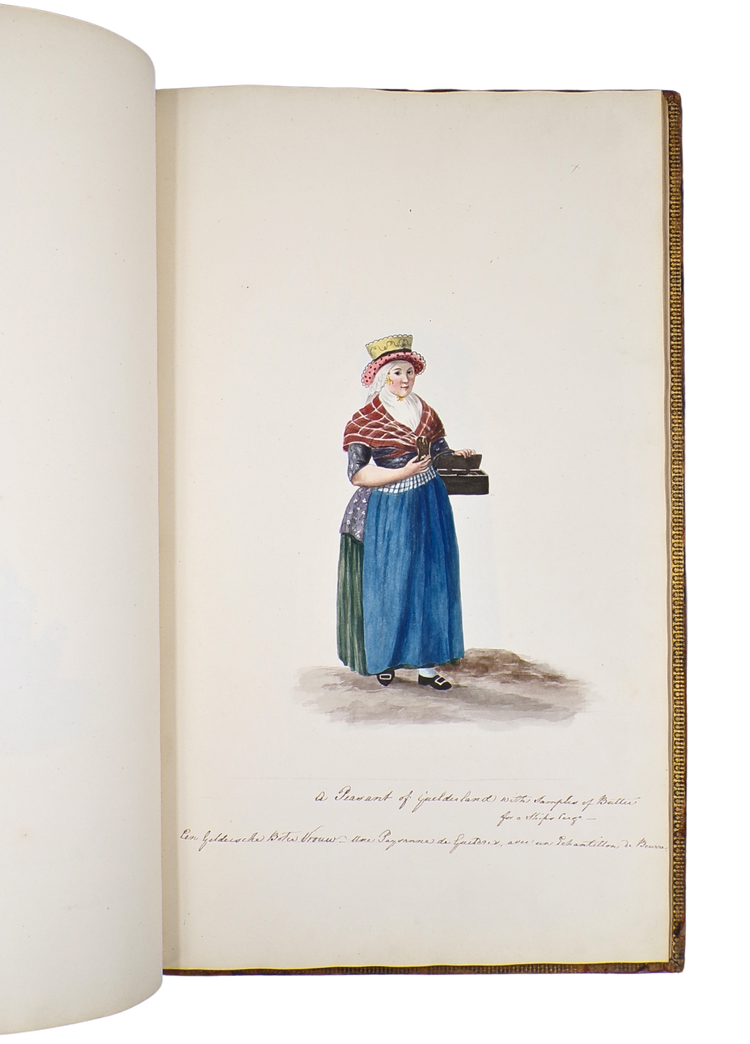 A Peasant of Guelderland with Samples of Butter
for a Ships Cargo —
Een Geldersche Boter Vrouw — Une Paysanne de Gueldres, avec un Echantillon de Beurre